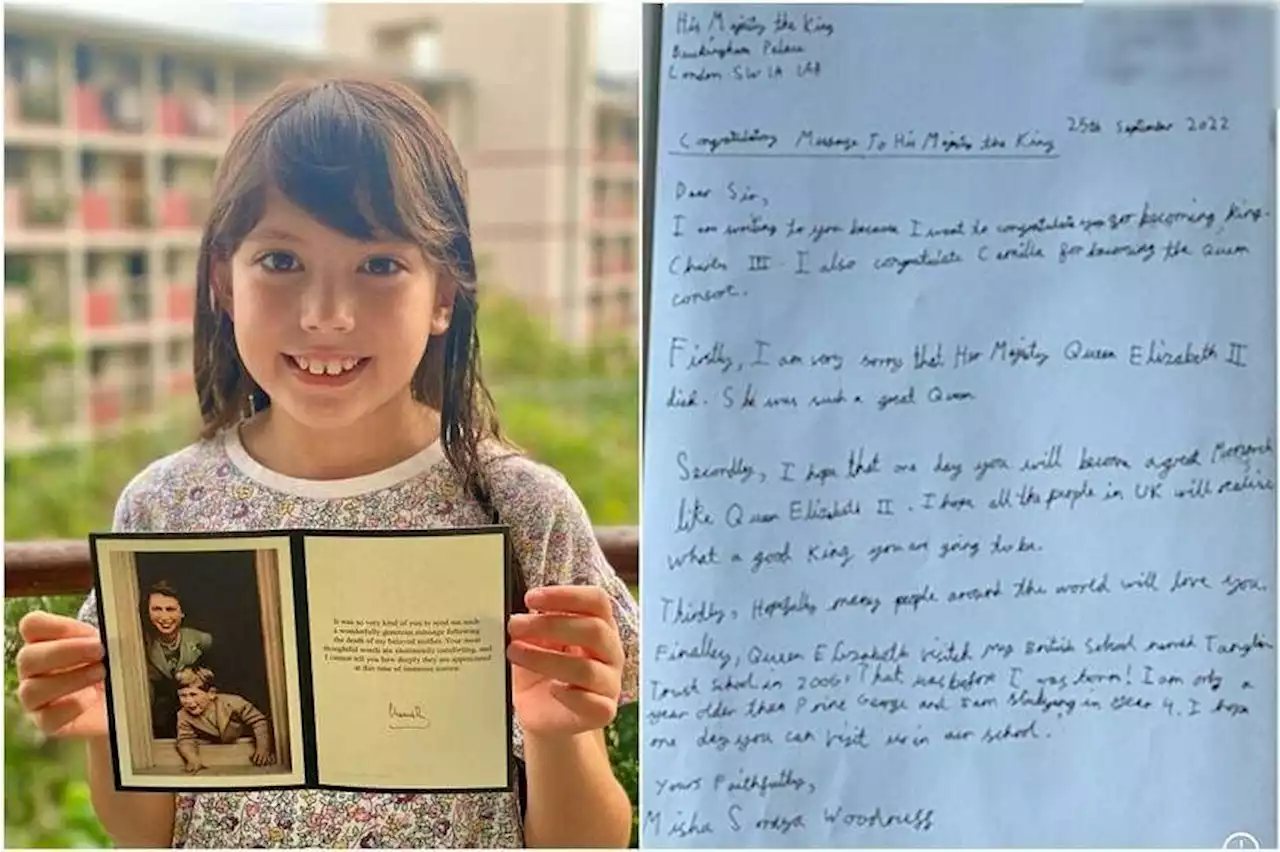 It was so very kind of you to send me such
a wonderfully generous message following
the death of my beloved mother. Your most
thoughtful words are enormously comforting, and
I cannot tell you how deeply they are appreciated
at this time of immense sorrow.
His Majesty the King
Buckingham Palace
London SW1A 1AA
25th September 2022
Message To His Majesty the King
Dear Sir,
I am writing to you because I want to congratulate you for becoming King
Charles III. I also congratulate Camilla for becoming the Queen
consort.
Firstly, I am very sorry that Her Majesty Queen Elizabeth II
died. She was such a great Queen
Secondly, I hope that one day you will become a great Monarch
like Queen Elizabeth II. I hope all the people in UK will realise
what a good King you are going to be.
Thirdly, Hopefully many people around the world will love you.
Finalley, Queen Elizabeth visited my British School named Tanglin
Trust School in 2006. That was before I was born! I am only a
year older than Prince George and I am studying in Year 4. I hope
one day you can visit us in our school.
Yours Faithfully,
Misha Woodness